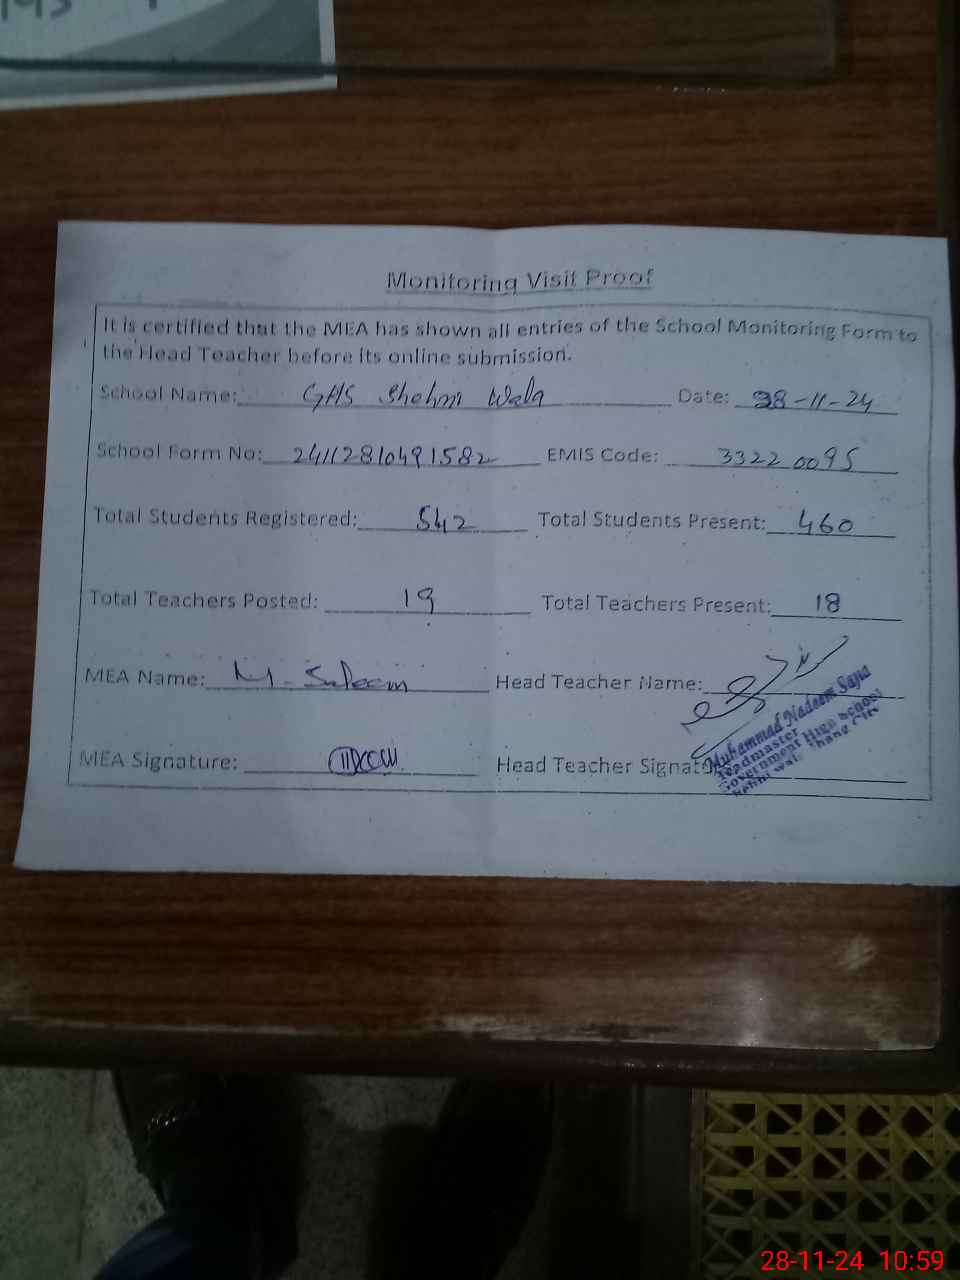 Monitoring Visit Proof
It is certified that the MEA has shown all entries of the School Monitoring Form to
the Head Teacher before its online submission.
School Name: GHS Shehni Wala Date: 28-11-24
School Form No: 24112810491582 EMIS Code: 33220095
Total Students Registered: 542 Total Students Present: 460
Total Teachers Posted: 19 Total Teachers Present: 18
MEA Name: M. Saleem Head Teacher Name:
MEA Signature: Head Teacher Signat
Muhammad Nadeem
Headmaster
Government High School
28-11-24 10:59